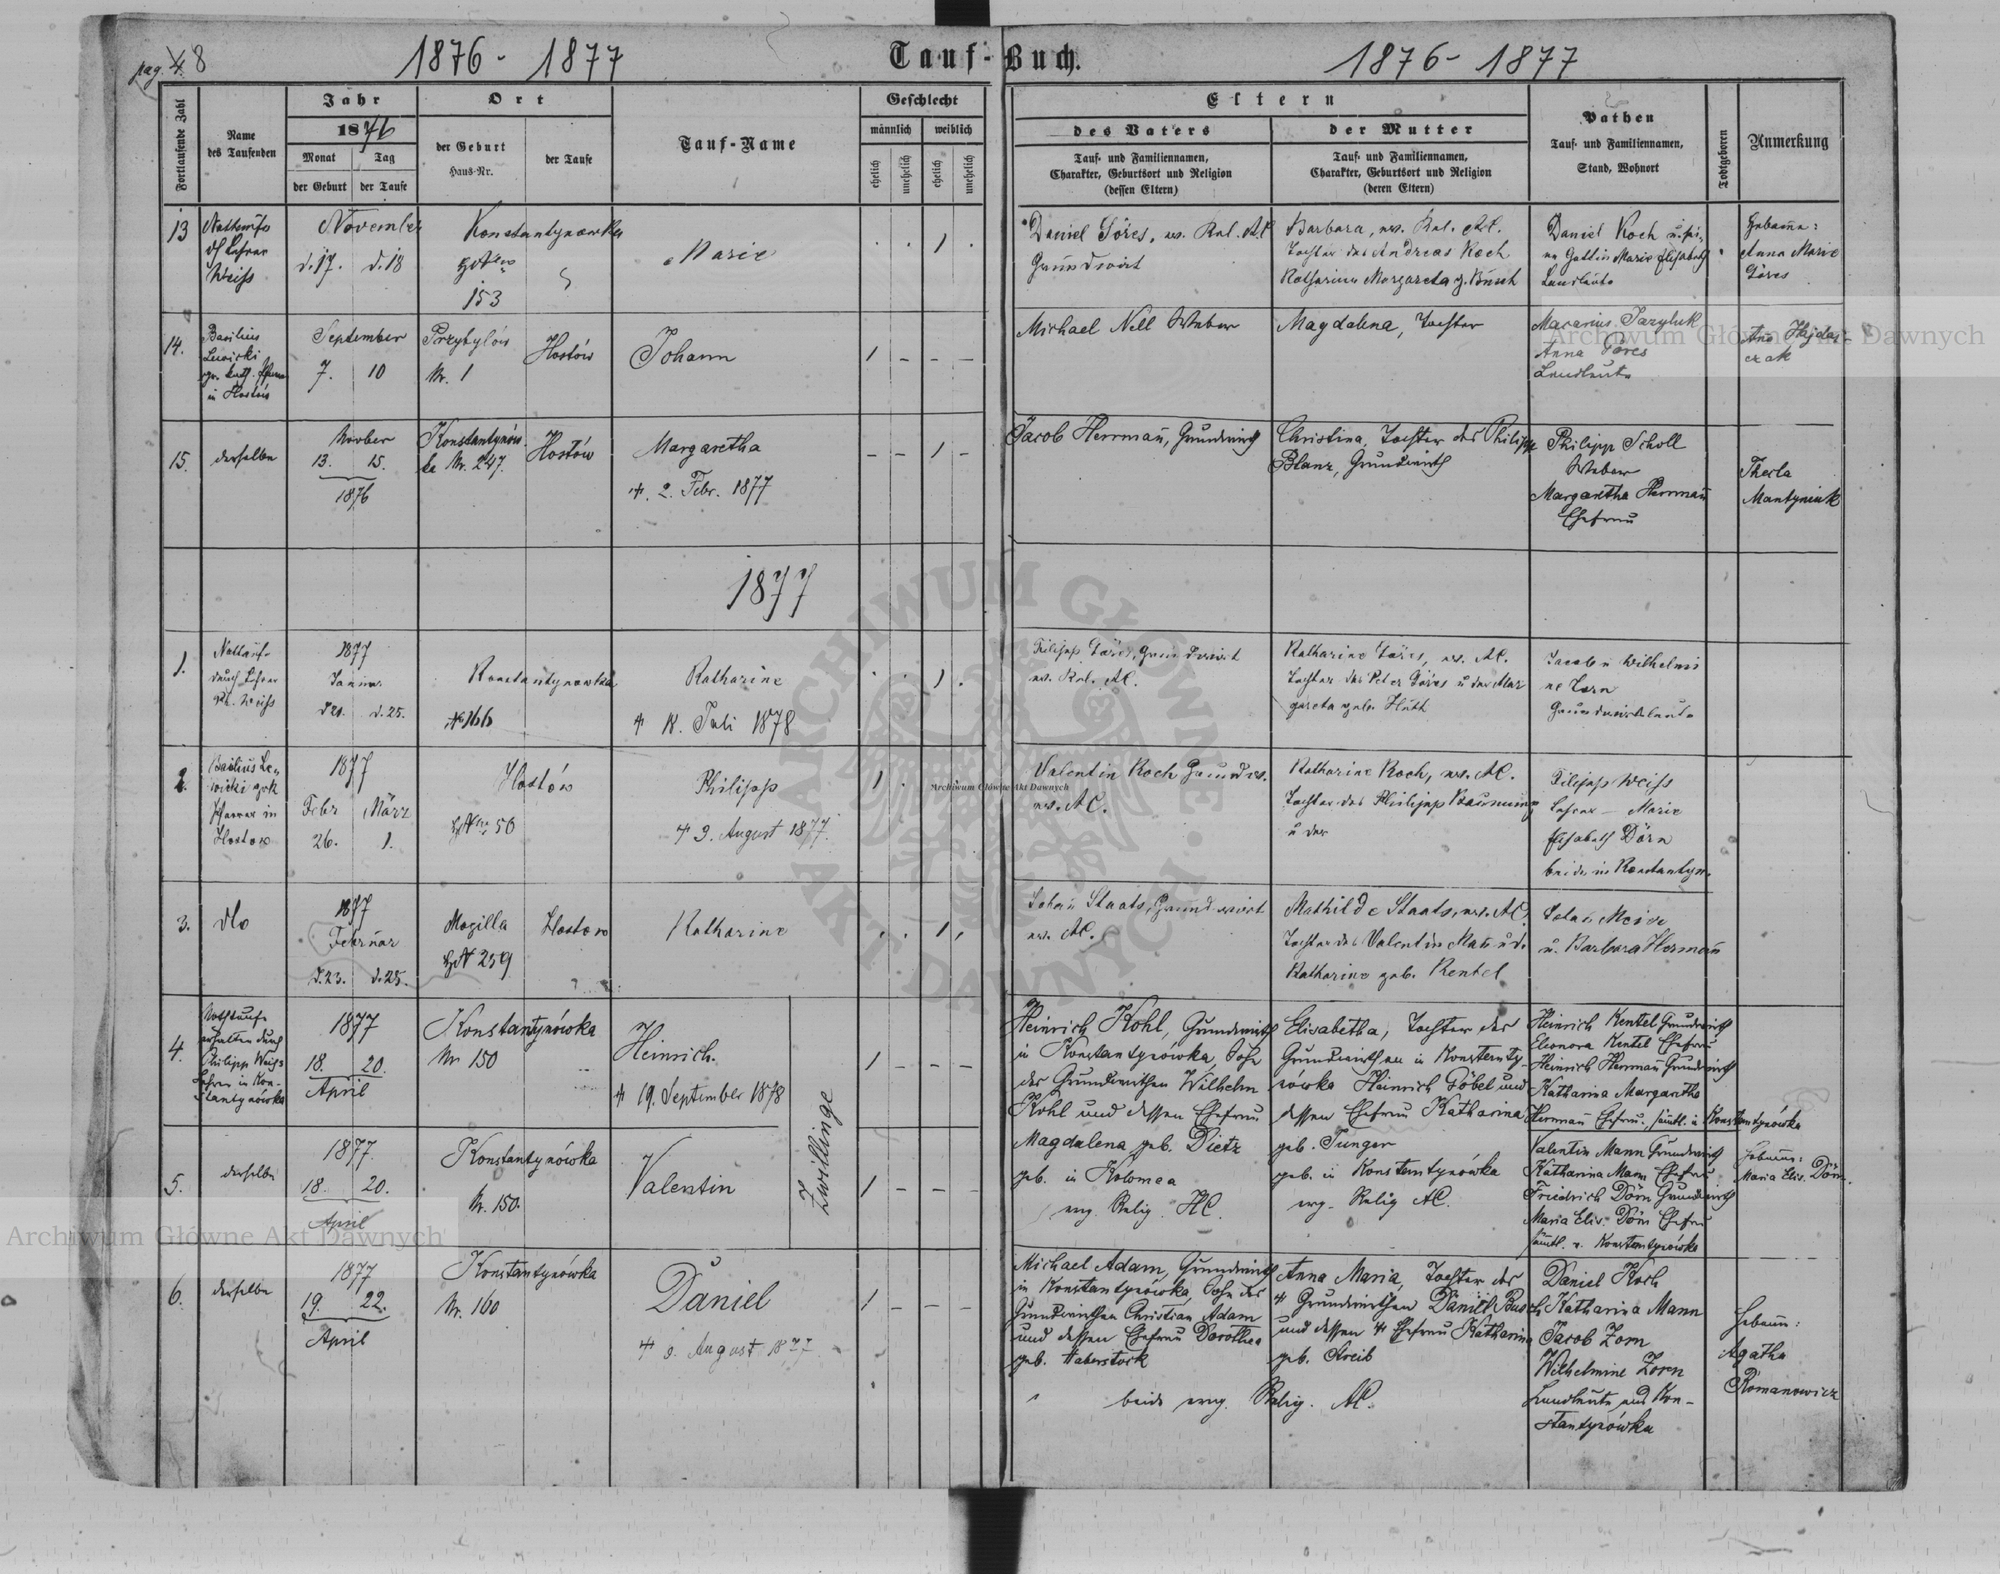 pag. 48
1876 - 1877
Tauf-Buch.
1876 - 1877
Fortlaufende Zahl
Name
des Taufenden
Jahr
1876
Monat
Tag
der Geburt
der Taufe
Ort
der Geburt
Haus-Nr.
der Taufe
Tauf-Name
Geschlecht
männlich
weiblich
ehelich
unehelich
ehelich
unehelich
Eltern
des Vaters
Tauf- und Familiennamen,
Charakter, Geburtsort und Religion
(dessen Eltern)
der Mutter
Tauf- und Familiennamen,
Charakter, Geburtsort und Religion
(deren Eltern)
Pathen
Tauf- und Familiennamen,
Stand, Wohnort
Todtgeboren
Anmerkung
13
Nottaufe
Lehrer
Weiss
November
d. 17. d. 18
Konstantynowka
153
Marie
1
Daniel Göres, ev. Rel. A.C.
Grundwirt
Barbara, ev. Rel. A.C.
Tochter des Andreas Koch
Katharina Margareta g. Busch
Daniel Koch u. sei-
ne Gattin Marie Elisabeth
Landleute
Hebamme:
Anna Marie
Göres
14.
Basilius
Lewicki
gr. kath. Pfarrer
in Hostów
September
7. 10
Przybylów
Nr. 1
Hostów
Johann
1 – – –
Michael Nell Weber
Magdalena, Tochter
Macarius Jazyluk
Anna Göres
Landleute
Ana Hajdas-
czak
15.
derselbe
Novber
13. 15.
1876
Konstantynów-
ka Nr. 247.
Hostów
Margaretha
+. 2. Febr. 1877
– – 1 –
Jacob Herrmañ, Grundwirth
Christina, Tochter des Philipp
Blanz, Grundwirth
Philipp Scholl
Weber
Margaretha Herrmañ
Ehefrau
Thecla
Mantyniuk
1877
1.
Nottaufe
durch Lehrer
Ph. Weiss
1877
Januar
d. 21. d. 25.
Konstantynowka
No 166
Katharine
+ 18. Juli 1878
1
Filipp Göres, Grundwirt
ev. Rel. AC.
Katharine Göres, ev. AC.
Tochter des Peter Göres u der Mar
gareta geb. Huth
Jacob u Wilhelmi
ne Zorn
Grundwirtsleute
2.
Basilius Le-
wicki gr. k
Pfarrer in
Hostow
1877
Febr März
26. 1.
Hostów
50
Philipp
+ 3. August 1877.
1
Valentin Koch Grundw.
ev. AC.
Katharine Koch, ev. AC.
Tochter des Philipp Baumung
u der
Filipp Weiss
Lehrer – Marie
Elisabeth Dörn
beide in Konstantyn.
3.
dto
1877
Februar
d. 23. d. 25.
Mogilla
259
Hostow
Katharine
1
Johañ Staats, Grundwirt
ev. AC.
Mathilde Staats, ev. AC.
Tochter des Valentin Matz u d.
Katharine geb. Rentel
u. Barbara Hermañ
4.
Nothtaufe
erhalten durch
Philipp Weiss
Lehrer in Kon-
stantynówka
1877
18. 20.
April
Konstantynówka
Nr 150
Heinrich.
+ 19. September 1878
Zwillinge
1 – – –
Heinrich Kohl, Grundwirth
in Konstantynówka, Sohn
des Grundwirthen Wilhelm
Kohl und dessen Ehefrau
Magdalena geb. Dietz
geb. in Kolomea
evg. Relig. HC.
Elisabetha, Tochter des
Grundwirthen in Konstanty-
nówka Heinrich Göbel und
dessen Ehefrau Katharina
geb. Junger
geb. in Konstantynówka
evg. Relig AC.
Heinrich Kentel Grundwirth
Eleonora Kentel Ehefrau
Heinrich Herrman Grundwirth
Katharina Margaretha
Herrmañ Ehefrau, sämtl. in Konstantynówka
5.
derselbe
1877
18. 20.
April
Konstantynówka
Nr. 150.
Valentin
1 – – –
Valentin Mann Grundwirth
Katharina Mann Ehefrau
Friedrich Dörn Grundwirth
Maria Elis. Dörn Ehefrau
sämtl. v. Konstantynówka
Hebamme:
Maria Elis. Dörn.
6.
derselbe
1877
19. 22.
April
Konstantynówka
Nr. 160
Daniel
+ 9. August 1877
1 – – –
Michael Adam, Grundwirth
in Konstantynówka, Sohn des
Grundwirthen Christian Adam
und dessen Ehefrau Dorothea
geb. Haberstock
Anna Maria, Tochter des
+ Grundwirthen Daniel Busch
und dessen + Ehefrau Katharina
geb. Kreib
beide evg. Relig. AC.
Daniel Koch
Katharina Mann
Jacob Zorn
Wilhelmine Zorn
Landleute aus Kon-
stantynówka
Hebamme:
Agatha
Romanowicz
Archiwum Główne Akt Dawnych
Archiwum Główne Akt Dawnych
Archiwum Główne Akt Dawnych
ARCHIWUM GŁÓWNE AKT DAWNYCH